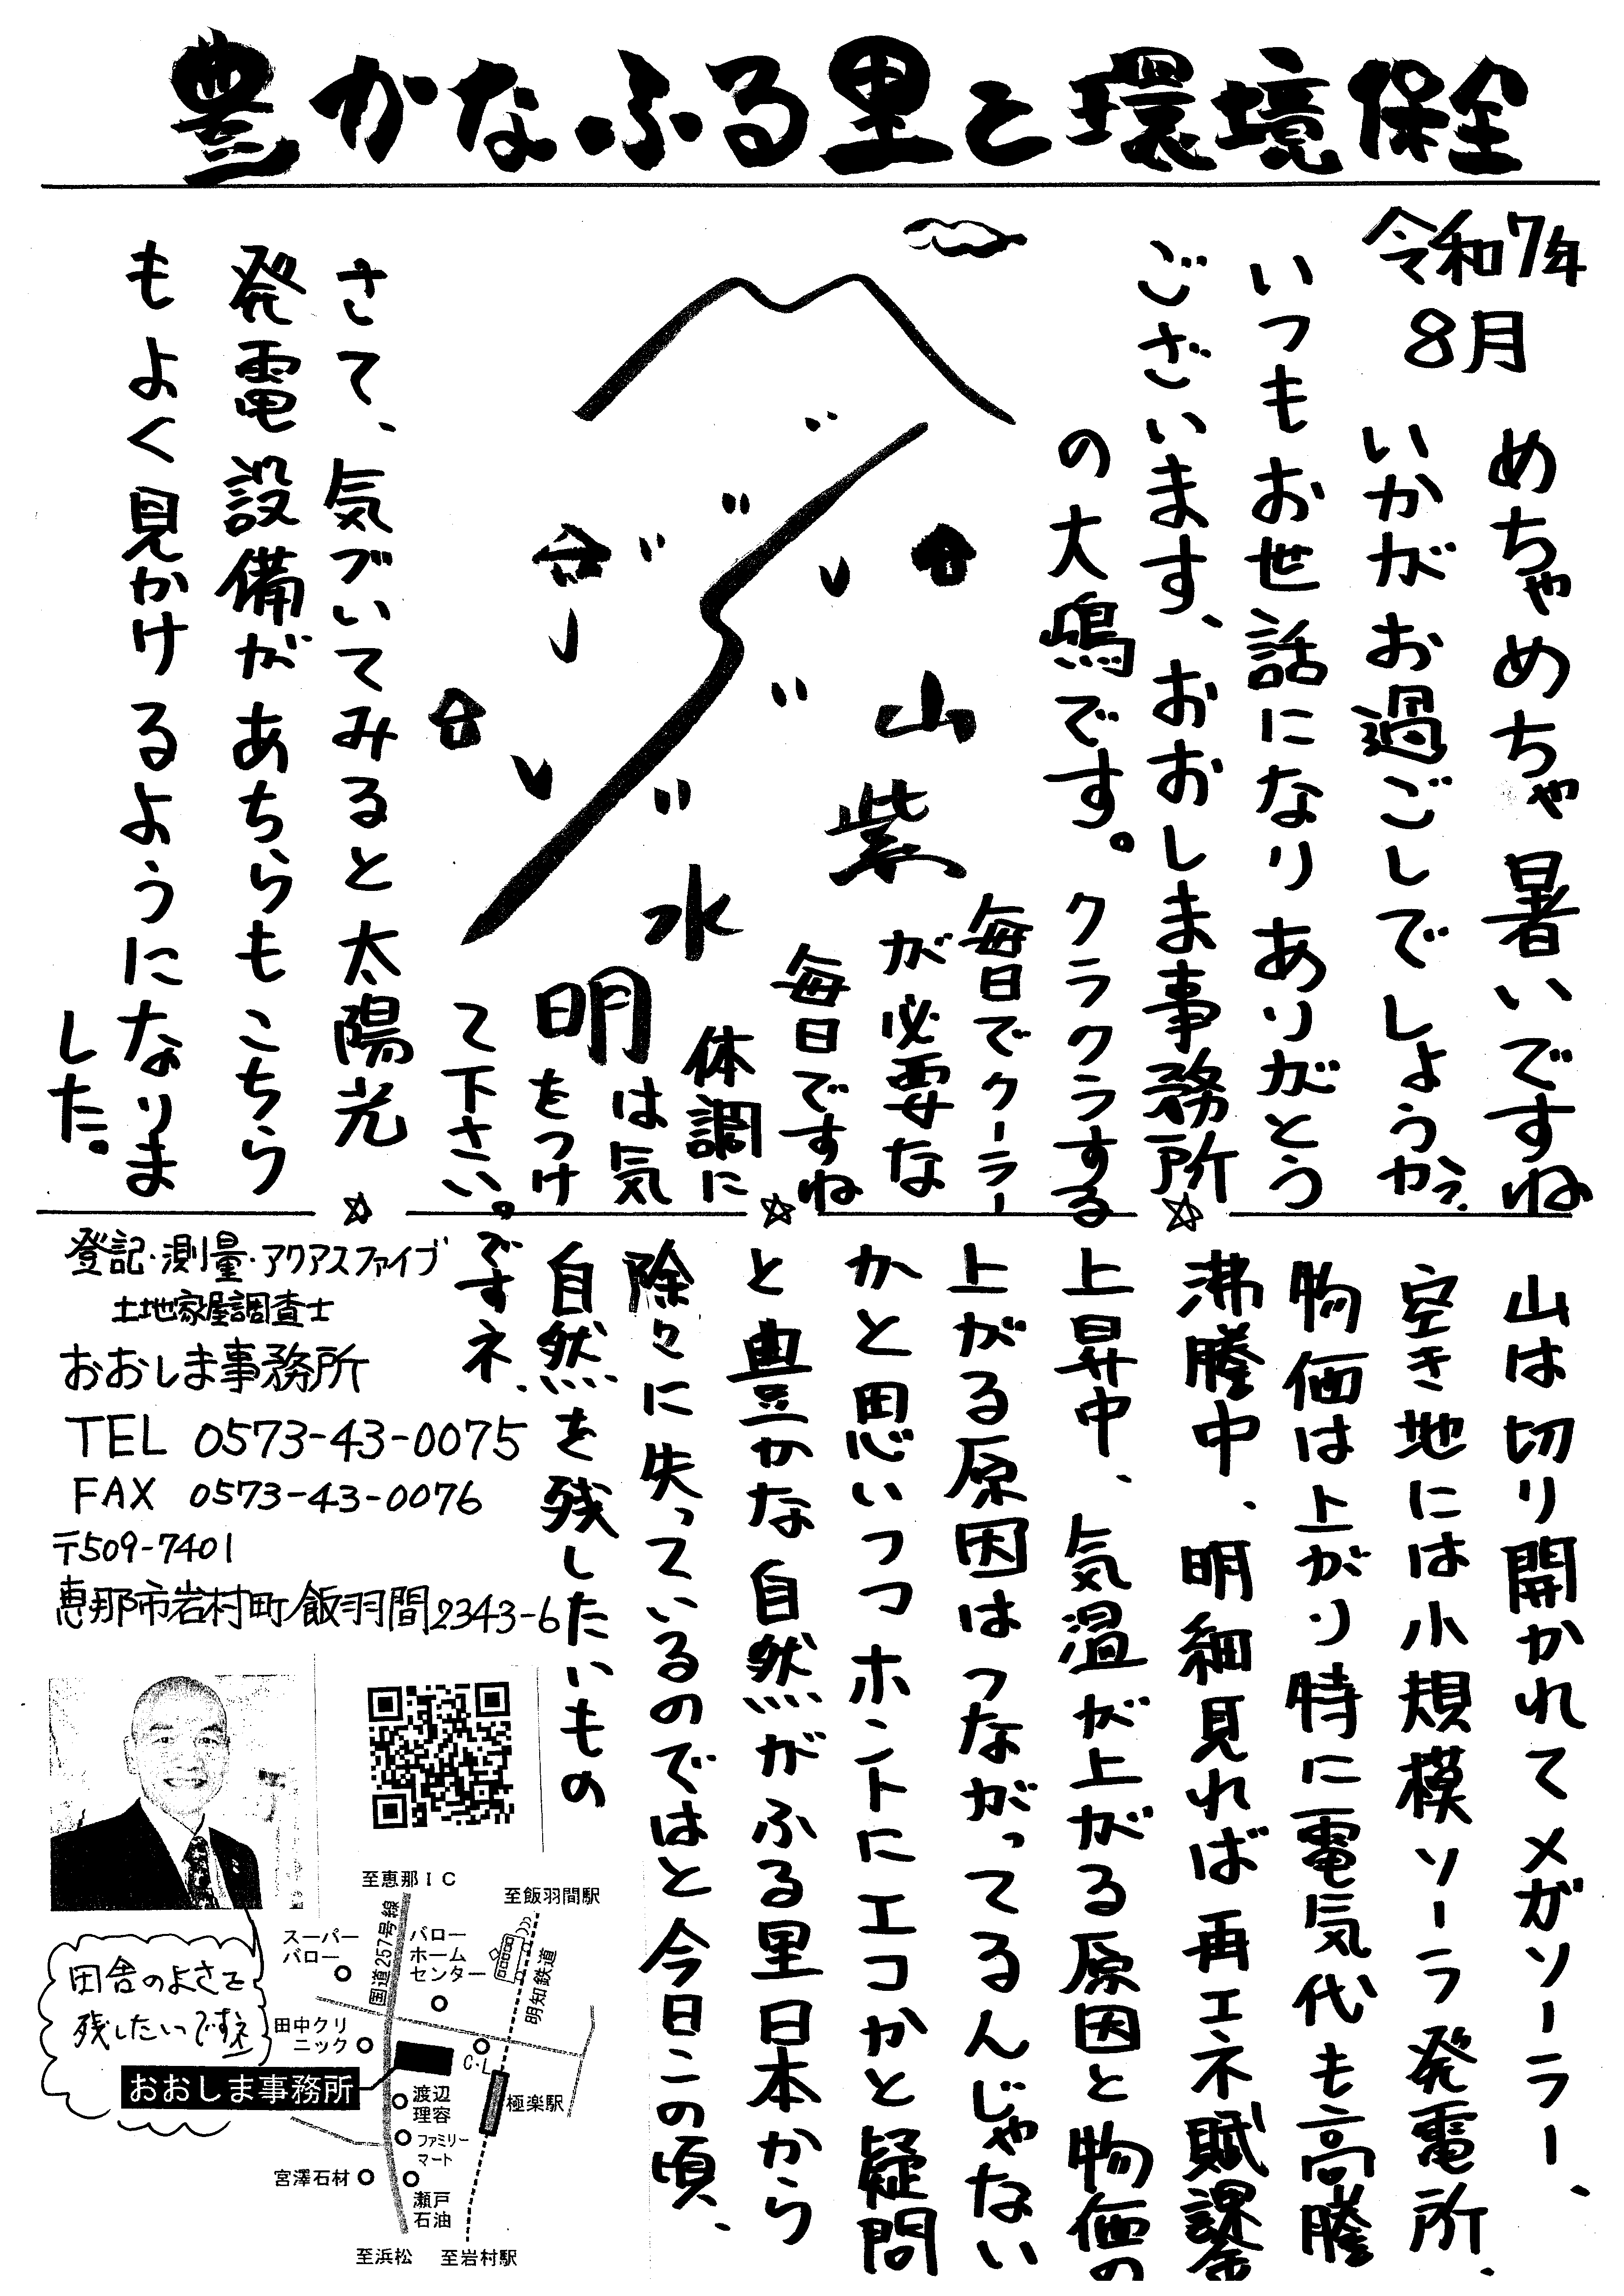 豊かなふる里と環境保全
令和7年
8月
めちゃめちゃ暑いですね
いかがお過ごしでしょうか?
いつもお世話になりありがとう
ございます、おおしま事務所
の大嶋です。クラクラする
毎日でクーラー
が必要な
毎日ですね
体調に
は気
をつけ
て下さい。
山紫
水明
さて、気づいてみると太陽光
発電設備があちらもこちら
もよく見かけるようになりま
した。
山は切り開かれてメガソーラー、
空き地には小規模ソーラ発電所、
物価は上がり特に電気代も高騰
沸騰中、明細見れば再エネ賦課金
上昇中、気温が上がる原因と物価の
上がる原因はつながってるんじゃない
かと思いつつホントにエコかと疑問
と豊かな自然がふる里日本から
除々に失っているのではと今日この頃、
自然を残したいもの
ですネ、
登記・測量・アクアスファイブ
土地家屋調査士
おおしま事務所
TEL 0573-43-0075
FAX 0573-43-0076
〒509-7401
恵那市岩村町飯羽間2343-6
田舎のよさを
残したいですネ
至恵那IC
至飯羽間駅
国道257号線
スーパー
バロー
バロー
ホーム
センター
明知鉄道
田中クリ
ニック
C・L
おおしま事務所
渡辺
理容
極楽駅
ファミリー
マート
宮澤石材
瀬戸
石油
至浜松
至岩村駅